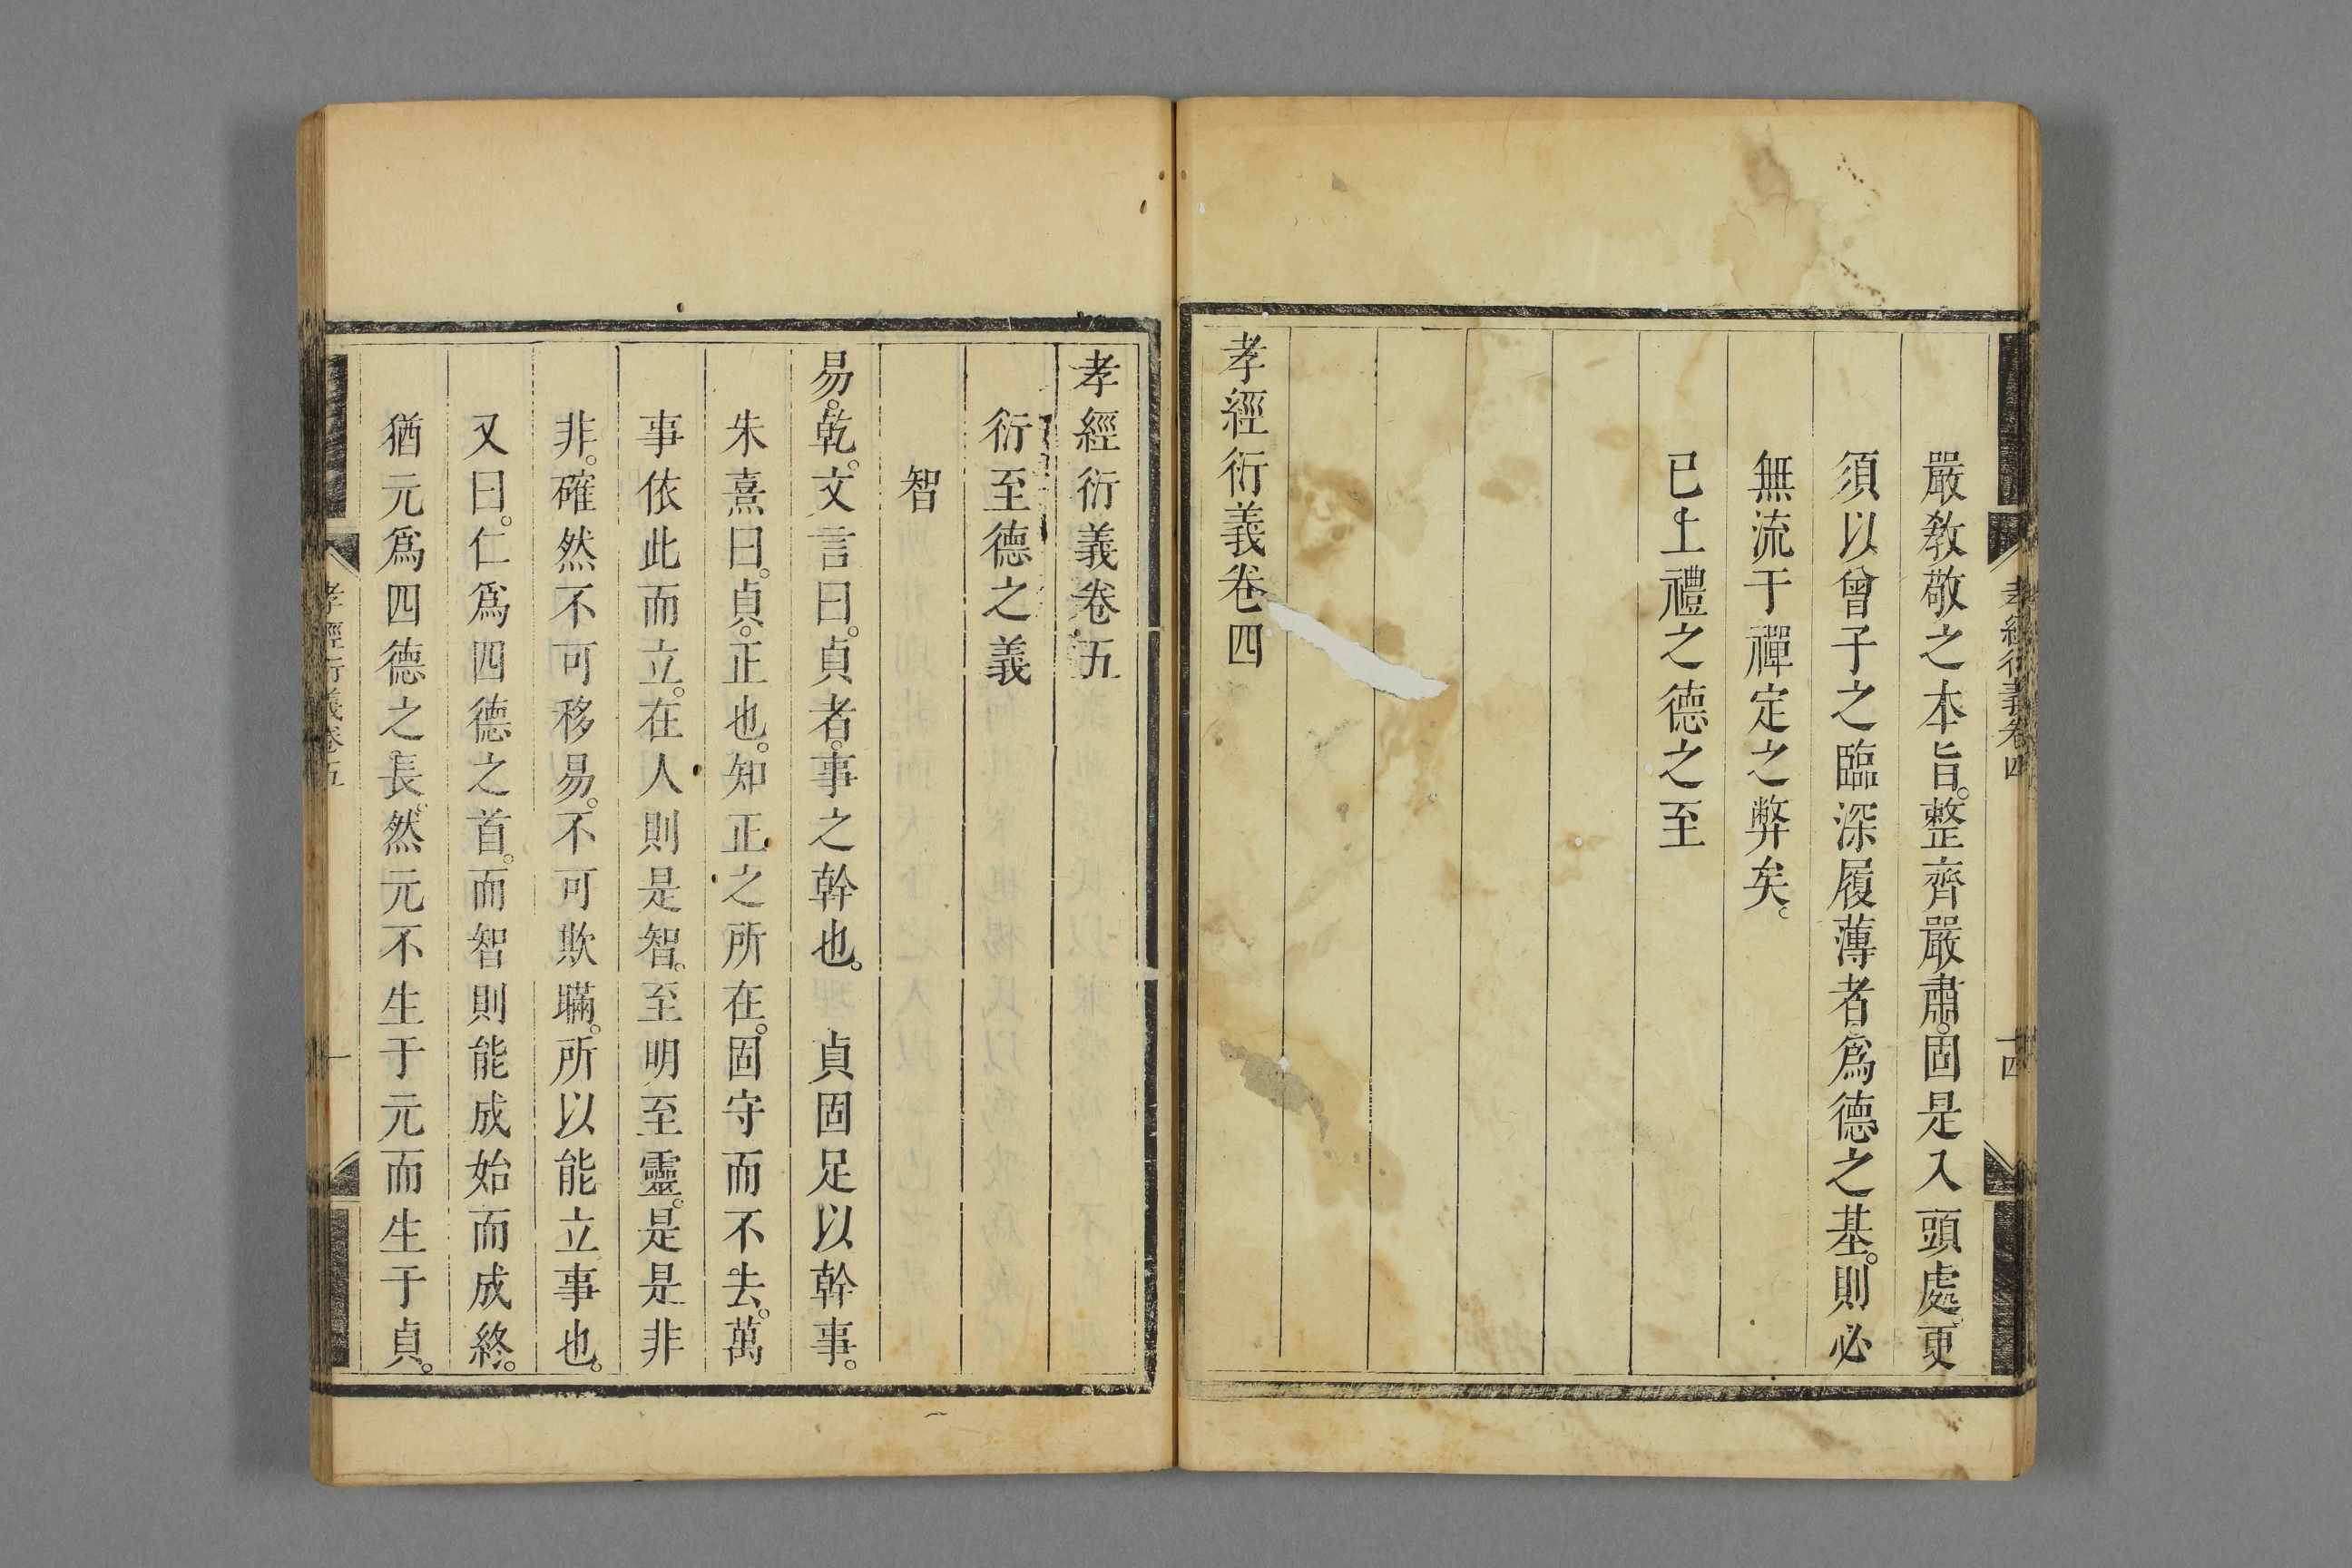 嚴教敬之本旨。整齊嚴肅。固是入頭處更
須以曾子之臨深履薄者爲德之基。則必
無流于禪定之弊矣。
已上禮之德之至
孝經衍義卷四
孝經衍義卷五
衍至德之義
智
易。乾。文言曰。貞者。事之幹也。　貞固足以幹事。
朱熹曰。貞。正也。知正之所在。固守而不去。萬
事依此而立。在人則是智。至明至靈。是是非
非。確然不可移易。不可欺瞞。所以能立事也。
又曰。仁爲四德之首。而智則能成始而成終。
猶元爲四德之長。然元不生于元而生于貞。
孝經衍義卷四
十四
孝經衍義卷五
一